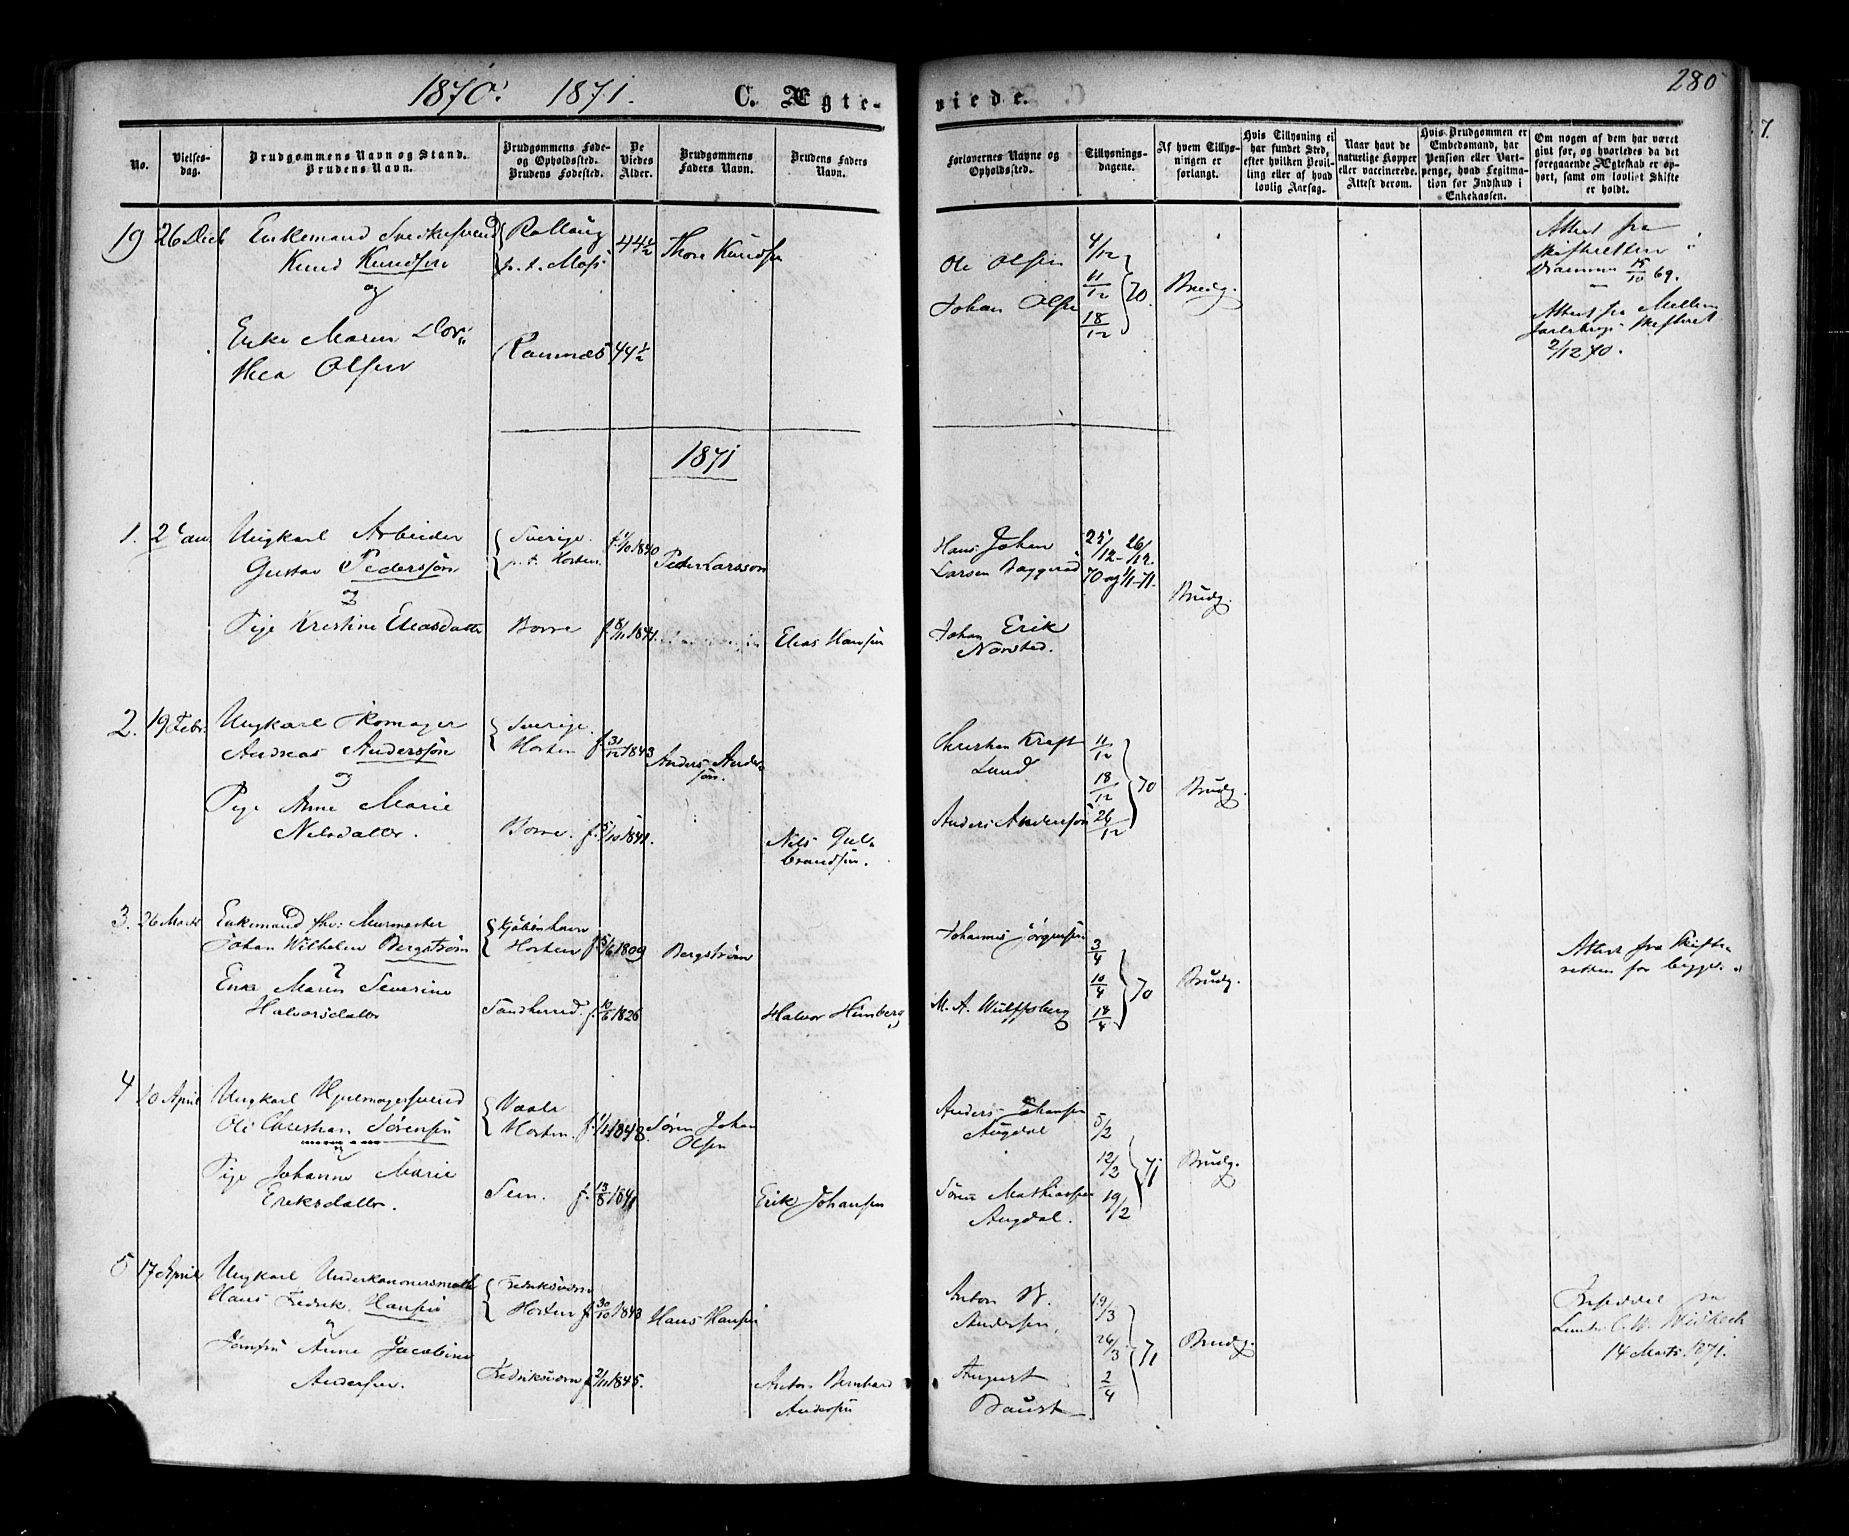 1870. 1871. C. Ægteviede. 280
No.
Vielsesdag.
Brudgommens Navn og Stand. Brudens Navn.
Brudgommens Føde- og Opholdssted. Brudens Fødested.
De Viedes Alder.
Brudgommens Faders Navn.
Brudens Faders Navn.
Forlovernes Navne og Opholdssted.
Tillysningsdagene.
Af hvem Tillysningen er forlangt.
Hvis Tillysning ei har fundet Sted, efter hvilken Bevilling eller af hvad lovlig Aarsag.
Naar havt de naturlige Kopper eller vaccinerede. Attest derom.
Hvis Brudgommen er Embedsmand, har Pension eller Vartpenge, hvad Legitimation for Indskud i Enkekassen.
Om nogen af dem har været gift før, og hvorledes da det foregaaende Ægteskab er ophørt, samt om lovligt Skifte er holdt.
19 26 Decb Enkemand Rollaug 44½ Thore Knudsen
Knud Knudsen p. t. Moss
og
Enke Maren Dorthea Olsen Ramnæs 44½
Ole Olsen 4/12
Johan Olsen 11/12 18/12 70. Brudg.
Attest fra Skifteretten Drammen 15/10 69.
Attest fra Mellem Jarlsbergs Skifteret 2/12 70.
1871
1. 2 Jan Ungkarl Arbeider Sverige. 1840 Peter Larsson
Gustav Pederssøn p. t. Horten
og
Pige Kristine Eliasdatter Borre f. 8/11 1841. Elias Hansen
Hans Johan Larsen 25/12 - 26/12 70 og 1/1-71. Brudg.
Johan Erik Norsted.
2. 19 Febr. Ungkarl Skomager Sverige. f. 31/12 1843 Anders Anderssøn.
Andreas Anderssøn Horten
og
Pige Anne Marie Nilsdatter. Borre. f. 5/10 1841. Nils Gulbrandsen.
Christian Kraft Lund 11/12 18/12 26/12 70 Brudg.
Anders Anderssøn
3. 26 Marts Enkemand fhv: Murmester Kjøbenhavn f. 5/6 1809 Bergstrøm
Johan Wilhelm Bergstrøm Horten
og
Enke Maren Severine Halvorsdatter Sandherred. f. 10/6 1826 Halvor Himberg
Johannes Jørgensen 3/4 10/4 18/4 70 Brudg.
M. A. Wulfsberg
Attest fra Skifteretten for begge.
4 10 April Ungkarl Hjulmagersvend Vaale f. 1/11 1848. Søren Johan Olsen
Ole Christian Sørensen Horten.
og
Pige Johanne Marie Eriksdatter. Sem. f. 13/8 1841 Erik Johansen
Anders Johansen Augdal 5/2 12/2 19/2 71 Brudg.
Søren Mathiassen Augdal.
5 17 April Ungkarl Underkanonersmath Fredriksværn f. 30/10 1843 Hans Hansen
Hans Fredrik Hansen Horten
og
Jomfru Anne Jacobine Andersen. Fredriksværn f. 2/11 1845. Anton Bernhard Andersen
Anton B. Andersen, 19/3 26/3 2/4 71 Brudg.
August Baust
14 Marts 1871.